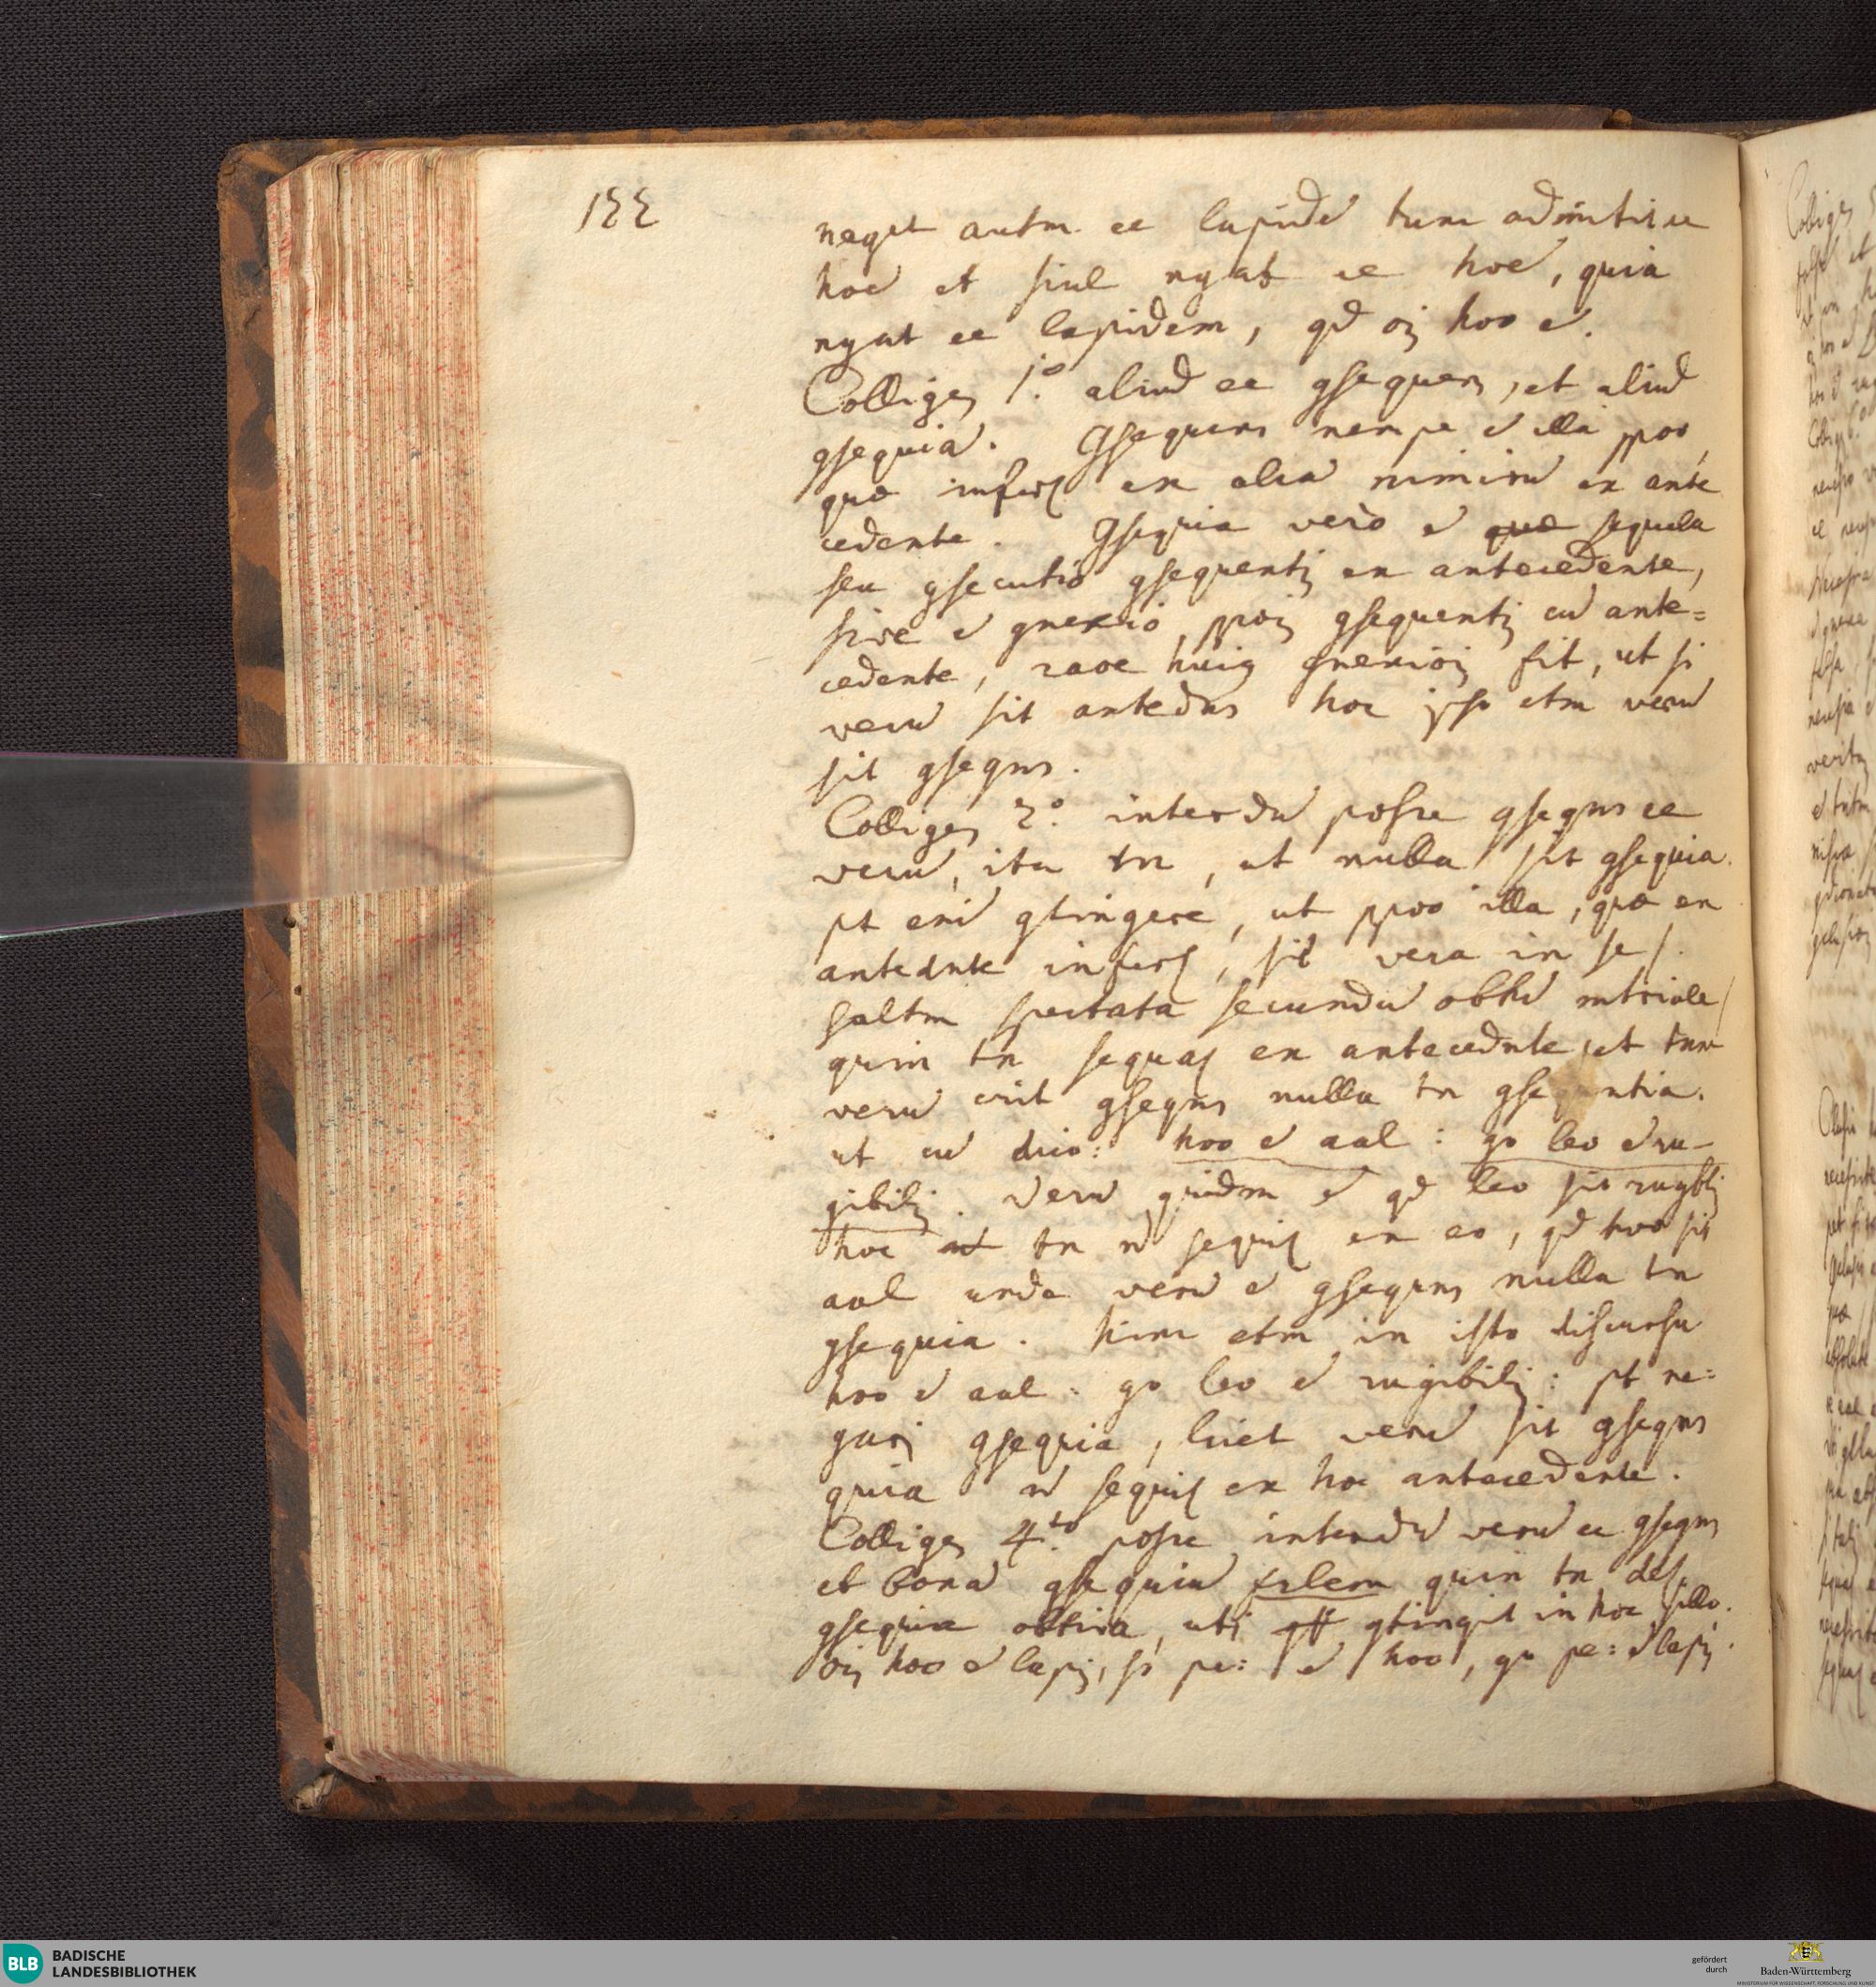 122
neget autm ee lapidē tunc admittit ee
hoē et siul negat ee hoē, quia
negat ee lapidem, qd ois hoo ē.
Colliges 1.º aliud ee gsequens, et aliud
gsequia. Gsequens nempe ē illa ppoo,
quæ infert ex alia nimirū ex ante
cedente. Gsequia verò ē quæ sequela
seu gsecutio gsequentis ex antecedente,
sive ē gnexio ppois gsequentis cū ante=
cedente, raoe huius gnexiois fit, ut si
verū sit antedns hoc ipso etm verū
sit gseqns.
Colliges 2.º interdū posse gseqns ee
verū, ita tn, ut nulla sit gsequia.
pt enī gtingere, ut ppoo illa, quæ ex
antednte infert, sit vera in se/.
saltm spectata secundū obtū mtriale/
quin tn sequat ex antecednte, et tunc
verū erit gseqns nulla tn gsequentia.
ut cū dico: hoo ē aal: go leo ē ru-
gibilis. Verū quidm ē qd leo sit rugblis
hoc at tn ñ sequit ex eo, qd hoo sit
aal unde verū ē gsequns nulla tn
gsequia. hinc etm in isto discursu
hoo ē aal: go leo ē rugibilis: pt ne=
gari gsequia, licet verū sit gseqns
quia ñ sequit ex hoc antecedente.
Colliges 4.to posse interdū verū ee gseqns
et bonā gsequiā frlem quin tn det
gsequia obtiva, uti gtingit in hoc sillo.
ois hoo ē lapis, si pe: ē hoo, go pe: ē lapis.
BLB BADISCHE
LANDESBIBLIOTHEK
gefördert
durch
Baden-Württemberg